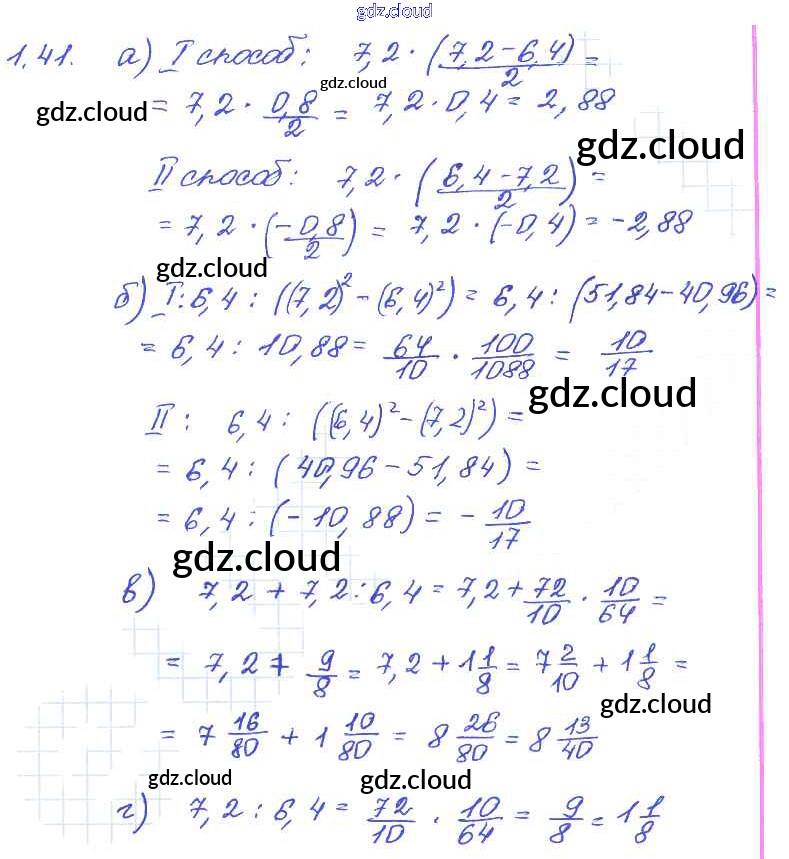 gdz.cloud
1.41. а) I способ: 7,2 · (7,2 - 6,4)/2 =
= 7,2 · 0,8/2 = 7,2 · 0,4 = 2,88
gdz.cloud
gdz.cloud
gdz.cloud
II способ: 7,2 · (6,4 - 7,2)/2 =
= 7,2 · (-0,8/2) = 7,2 · (-0,4) = -2,88
gdz.cloud
б) I: 6,4 : ((7,2)² - (6,4)²) = 6,4 : (51,84 - 40,96) =
= 6,4 : 10,88 = 64/10 · 100/1088 = 10/17
gdz.cloud
II: 6,4 : ((6,4)² - (7,2)²) =
= 6,4 : (40,96 - 51,84) =
= 6,4 : (-10,88) = -10/17
gdz.cloud
в) 7,2 + 7,2 : 6,4 = 7,2 + 72/10 · 10/64 =
= 7,2 + 9/8 = 7,2 + 1 1/8 = 7 2/10 + 1 1/8 =
gdz.cloud
= 7 16/80 + 1 10/80 = 8 26/80 = 8 13/40
gdz.cloud
gdz.cloud
г) 7,2 : 6,4 = 72/10 · 10/64 = 9/8 = 1 1/8